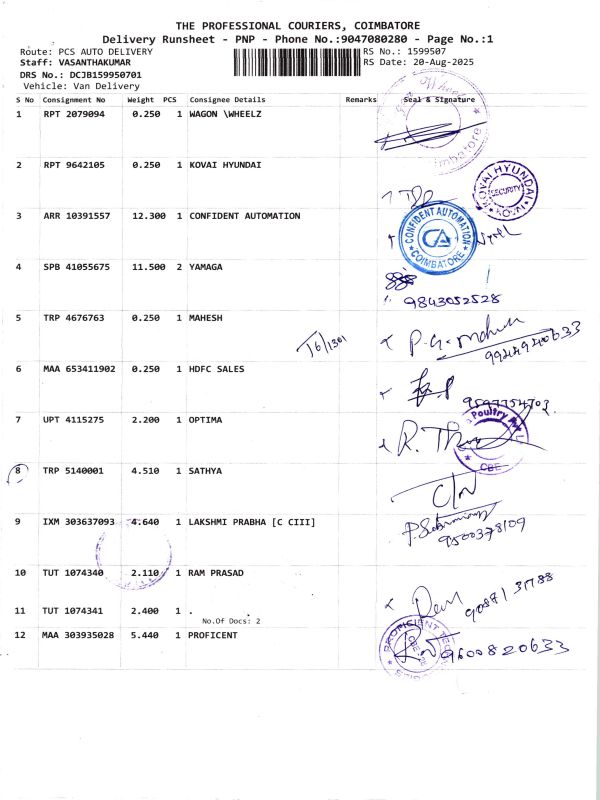 THE PROFESSIONAL COURIERS, COIMBATORE
Delivery Runsheet - PNP - Phone No.:9047080280 - Page No.:1
Route: PCS AUTO DELIVERY RS No.: 1599507
Staff: VASANTHAKUMAR RS Date: 20-Aug-2025
DRS No.: DCJB159950701
Vehicle: Van Delivery
S No Consignment No Weight PCS Consignee Details Remarks Seal & Signature
1 RPT 2079094 0.250 1 WAGON \WHEELZ
2 RPT 9642105 0.250 1 KOVAI HYUNDAI
KOVAI HYUNDAI SECURITY KOVAI
3 ARR 10391557 12.300 1 CONFIDENT AUTOMATION
CONFIDENT AUTOMATION CA COIMBATORE
4 SPB 41055675 11.500 2 YAMAGA
9843052528
5 TRP 4676763 0.250 1 MAHESH
6 MAA 653411902 0.250 1 HDFC SALES
7 UPT 4115275 2.200 1 OPTIMA
Poultry
CBE
8 TRP 5140001 4.510 1 SATHYA
9 IXM 303637093 4.640 1 LAKSHMI PRABHA [C CIII]
10 TUT 1074340 2.110 1 RAM PRASAD
11 TUT 1074341 2.400 1 .
No.Of Docs: 2
12 MAA 303935028 5.440 1 PROFICENT
9600820633